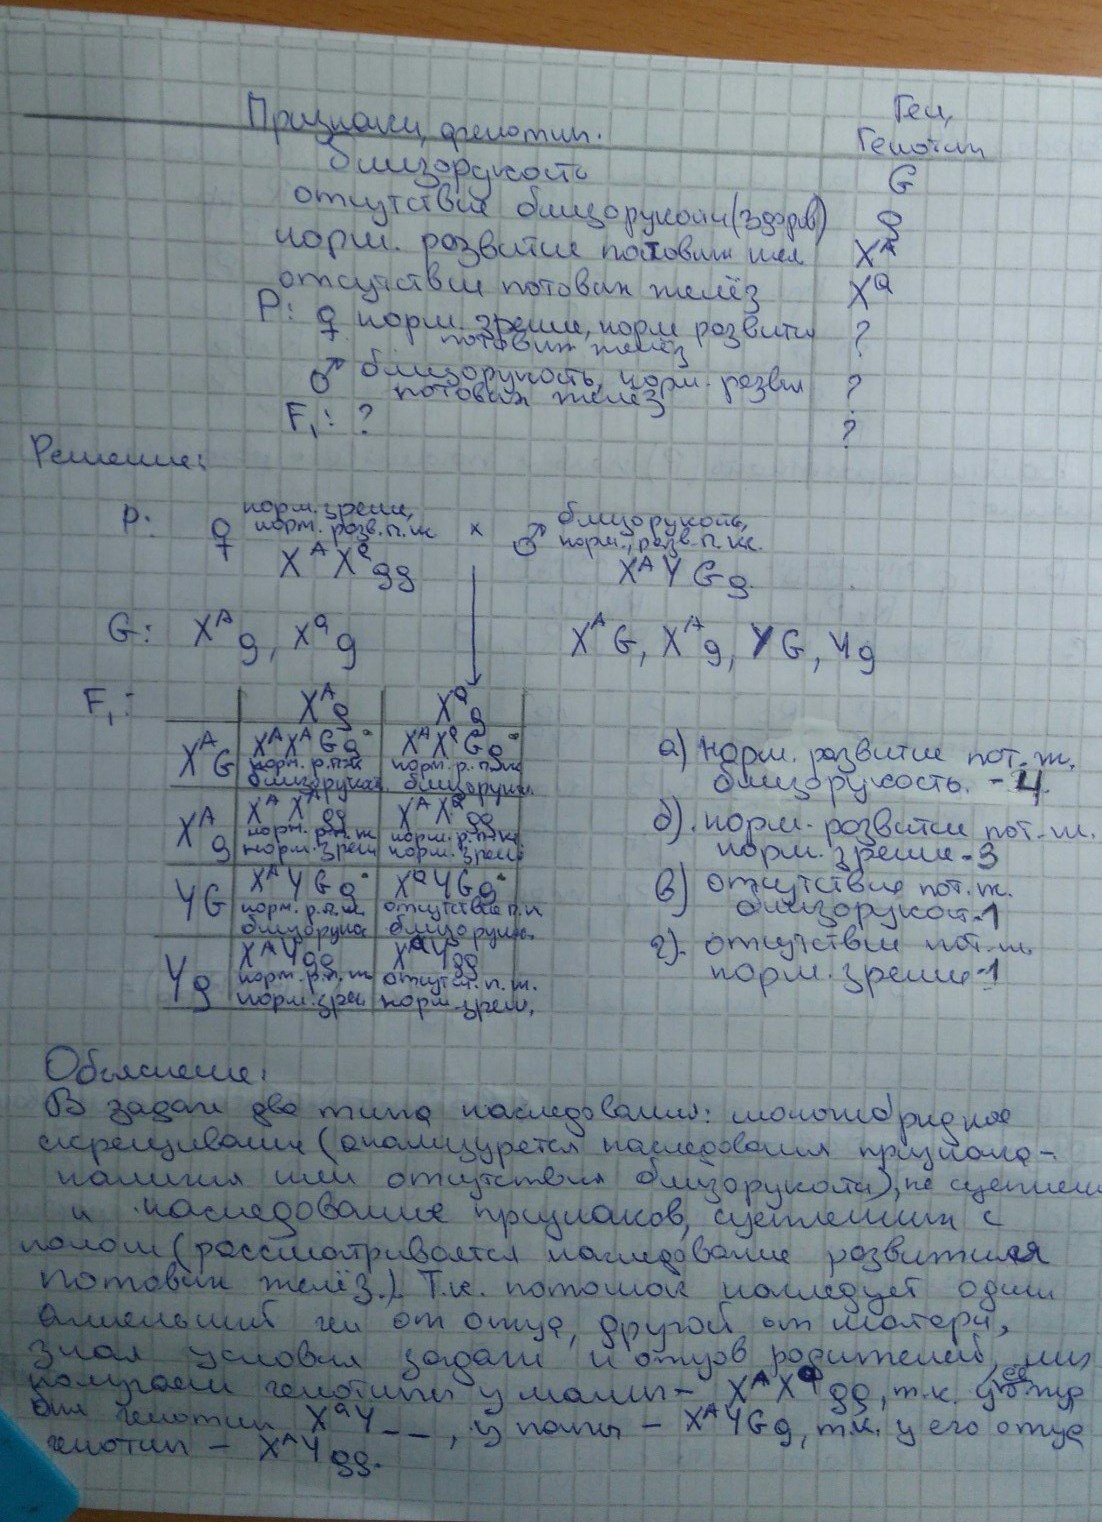 Признаки, фенотип. Ген, Генотип
близорукость G
отсутствие близорукости (здоров) g
норм. развитие потовых жел X^A
отсутствие потовых желёз X^a
P: ♀ норм. зрение, норм развития потовых желёз ?
♂ близорукость, норм. развит потовых желёз ?
F₁: ? ?
Решение:
P: ♀ норм. зрение, норм. разв. п. ж × ♂ близорукость, норм., разв. п. ж.
X^A X^a gg X^A Y Gg.
G: X^A g, X^a g X^A G, X^A g, YG, Yg
F₁: X^A g X^a g
X^A G X^A X^A Gg норм. р. п. ж близорукос. X^A X^a Gg норм. р. п. ж близорук.
X^A g X^A X^A gg норм. р. п. ж норм. зрен X^A X^a gg норм. р. п. ж норм. зрен.
YG X^A Y Gg норм. р. п. ж. близорукос X^a Y Gg отсутствие п. ж близорукос.
Yg X^A Y gg норм. р. п. ж норм. зрен X^a Y gg отсутст. п. ж. норм. зрен.
а) норм. развитие пот. ж.
близорукость. - 4
б). норм. развитие пот. ж.
норм. зрение - 3
в) отсутствие пот. ж.
близорукост. - 1
г). отсутствие пот. ж.
норм. зрение - 1
Объяснение:
В задаче два типа наследования: моногибридное
скрещивание (анализуретса наследования признака -
наличия или отсутствия близорукости), не сцеплен
и наследование признаков, сцепленных с
полом (рассматривается наследование развития
потовых желёз.). Т.к. потомок наследует один
аллельный ген от отца, другой от матери,
зная условия задачи и отцов родителей, мы
получаем генотипы у мамы - X^A X^a gg, т.к. у её отца
был генотип X^a Y _ _, у папы - X^A Y Gg, т.к. у его отца
генотип - X^A Y gg.